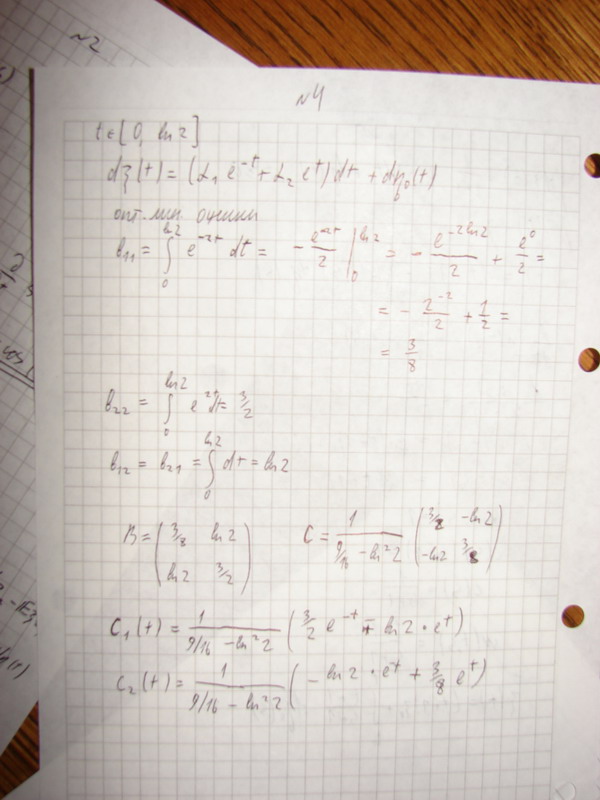 N2
N4
t ∈ [0, ln 2]
dξ(t) = (α₁ e^{-t} + α₂ e^{t}) dt + dη₀(t)
опт. лин. оценки
b₁₁ = ∫₀^{ln2} e^{-2t} dt = - e^{-2t}/2 |₀^{ln2} = - e^{-2ln2}/2 + e⁰/2 =
= - 2^{-2}/2 + 1/2 =
= 3/8
b₂₂ = ∫₀^{ln2} e^{2t} dt = 3/2
b₁₂ = b₂₁ = ∫₀^{ln2} dt = ln 2
B = (3/8 ln 2; ln 2 3/2) C = 1/(9/16 - ln²2) (3/2 -ln 2; -ln 2 3/8)
C₁(t) = 1/(9/16 - ln²2) (3/2 e^{-t} - ln 2 · e^{t})
C₂(t) = 1/(9/16 - ln²2) (- ln 2 · e^{-t} + 3/8 e^{t})